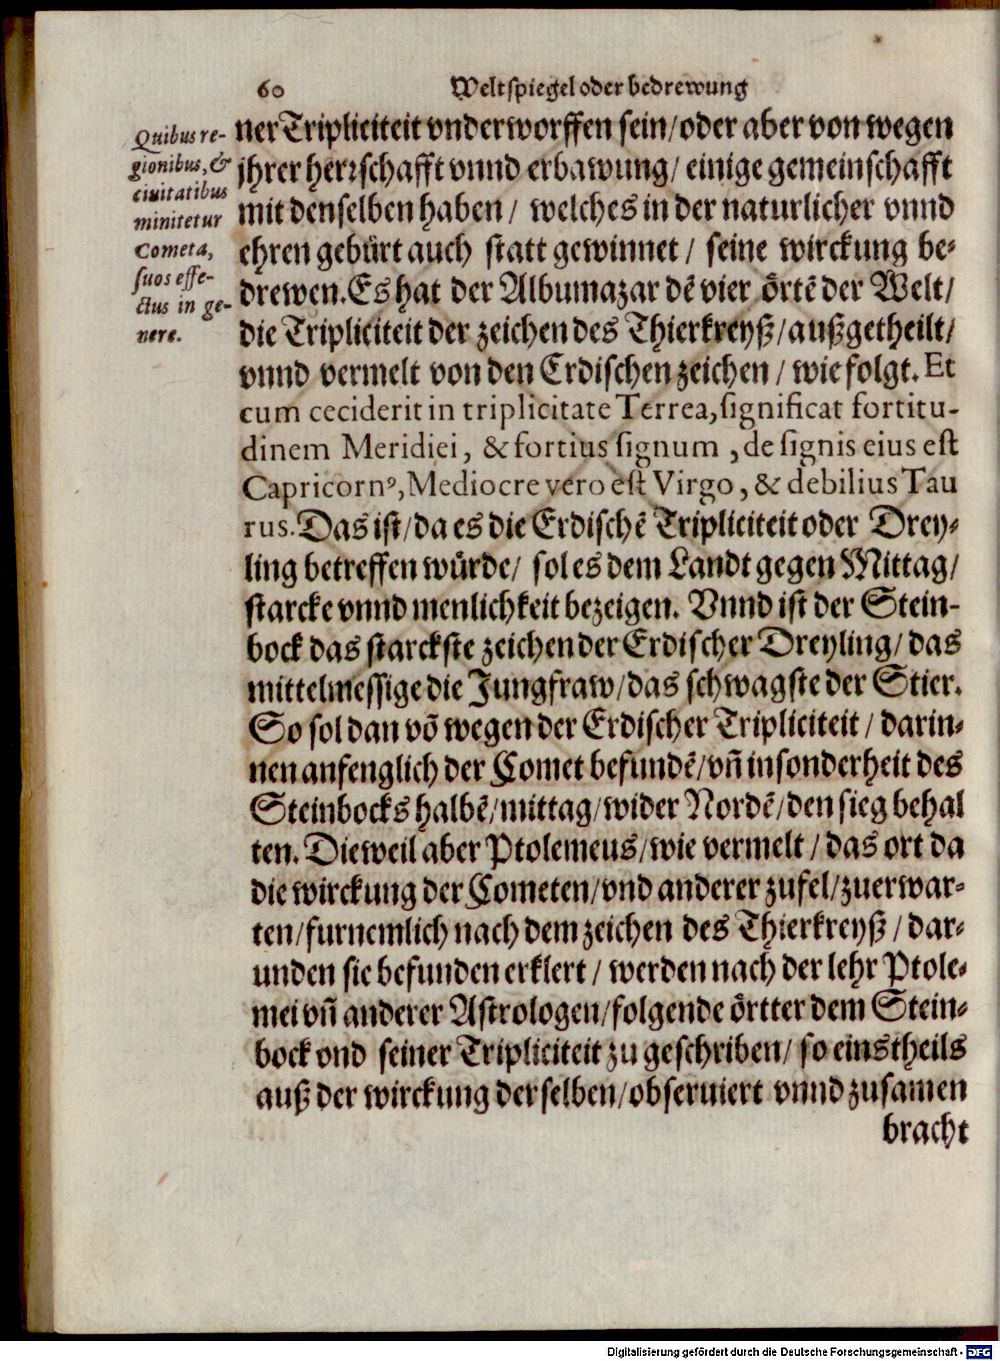 60 Weltspiegel oder bedrewung
Quibus re-
gionibus, &
ciuitatibus
minitetur
Cometa,
suos effe-
ctus in ge-
nere.
ner Tripliciteit vnderworffen sein/oder aber von wegen
jhrer herrschafft vnnd erbawung/ einige gemeinschafft
mit denselben haben/ welches in der naturlicher vnnd
ehren gebürt auch statt gewinnet/ seine wirckung be-
drewen. Es hat der Albumazar dē vier örtē der Welt/
die Tripliciteit der zeichen des Thierkreyß/außgetheilt/
vnnd vermelt von den Erdischen zeichen/ wie folgt. Et
cum ceciderit in triplicitate Terrea, significat fortitu-
dinem Meridiei, & fortius signum, de signis eius est
Capricornꝰ, Mediocre vero est Virgo, & debilius Tau
rus. Das ist/da es die Erdischē Tripliciteit oder Drey-
ling betreffen würde/ sol es dem Landt gegen Mittag/
starcke vnnd menlichkeit bezeigen. Vnnd ist der Stein-
bock das starckste zeichen der Erdischer Dreyling/ das
mittelmessige die Jungfraw/das schwagste der Stier.
So sol dan võ wegen der Erdischer Tripliciteit/ darin-
nen anfenglich der Comet befundē/vñ insonderheit des
Steinbocks halbē/mittag/wider Nordē/den sieg behal
ten. Dieweil aber Ptolemeus/wie vermelt/das ort da
die wirckung der Cometen/vnd anderer zufel/zuerwar-
ten/furnemlich nach dem zeichen des Thierkreyß/ dar-
unden sie befunden erklert/ werden nach der lehr Ptole-
mei vñ anderer Astrologen/folgende örtter dem Stein-
bock vnd seiner Tripliciteit zu geschriben/ so einstheils
auß der wirckung derselben/obseruiert vnnd zusamen
bracht
Digitalisierung gefördert durch die Deutsche Forschungsgemeinschaft - DFG